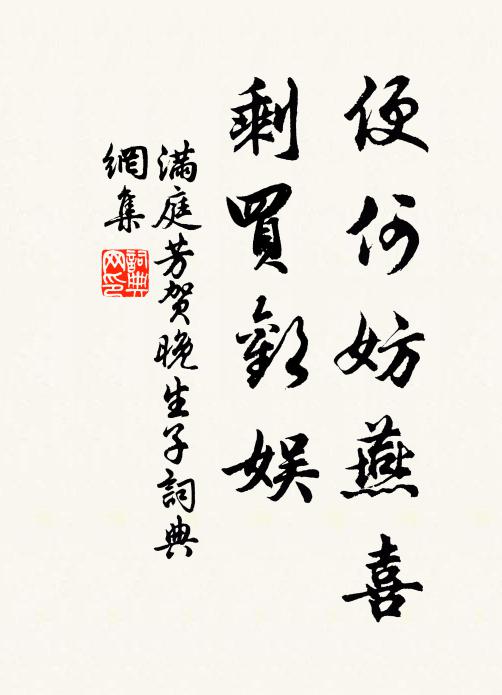 便何妨燕喜
剩買歡娱
滿庭芳賀晚生子詞典
網集
詞典
网印